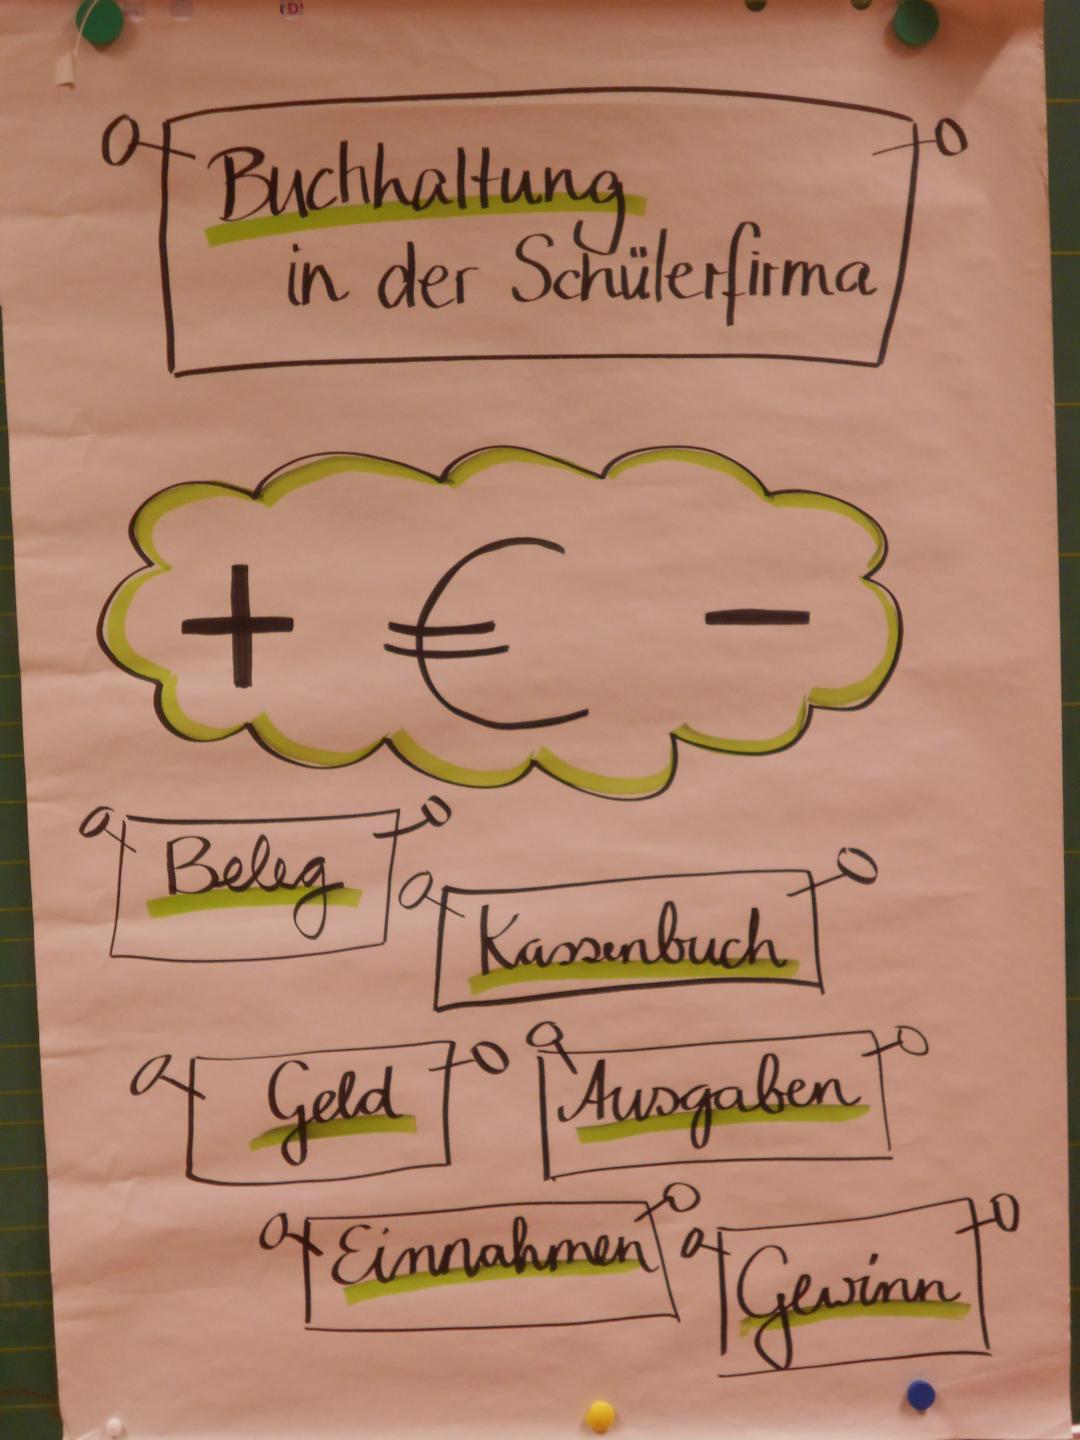 Buchhaltung
in der Schülerfirma
+ € −
Beleg
Kassenbuch
Geld
Ausgaben
Einnahmen
Gewinn